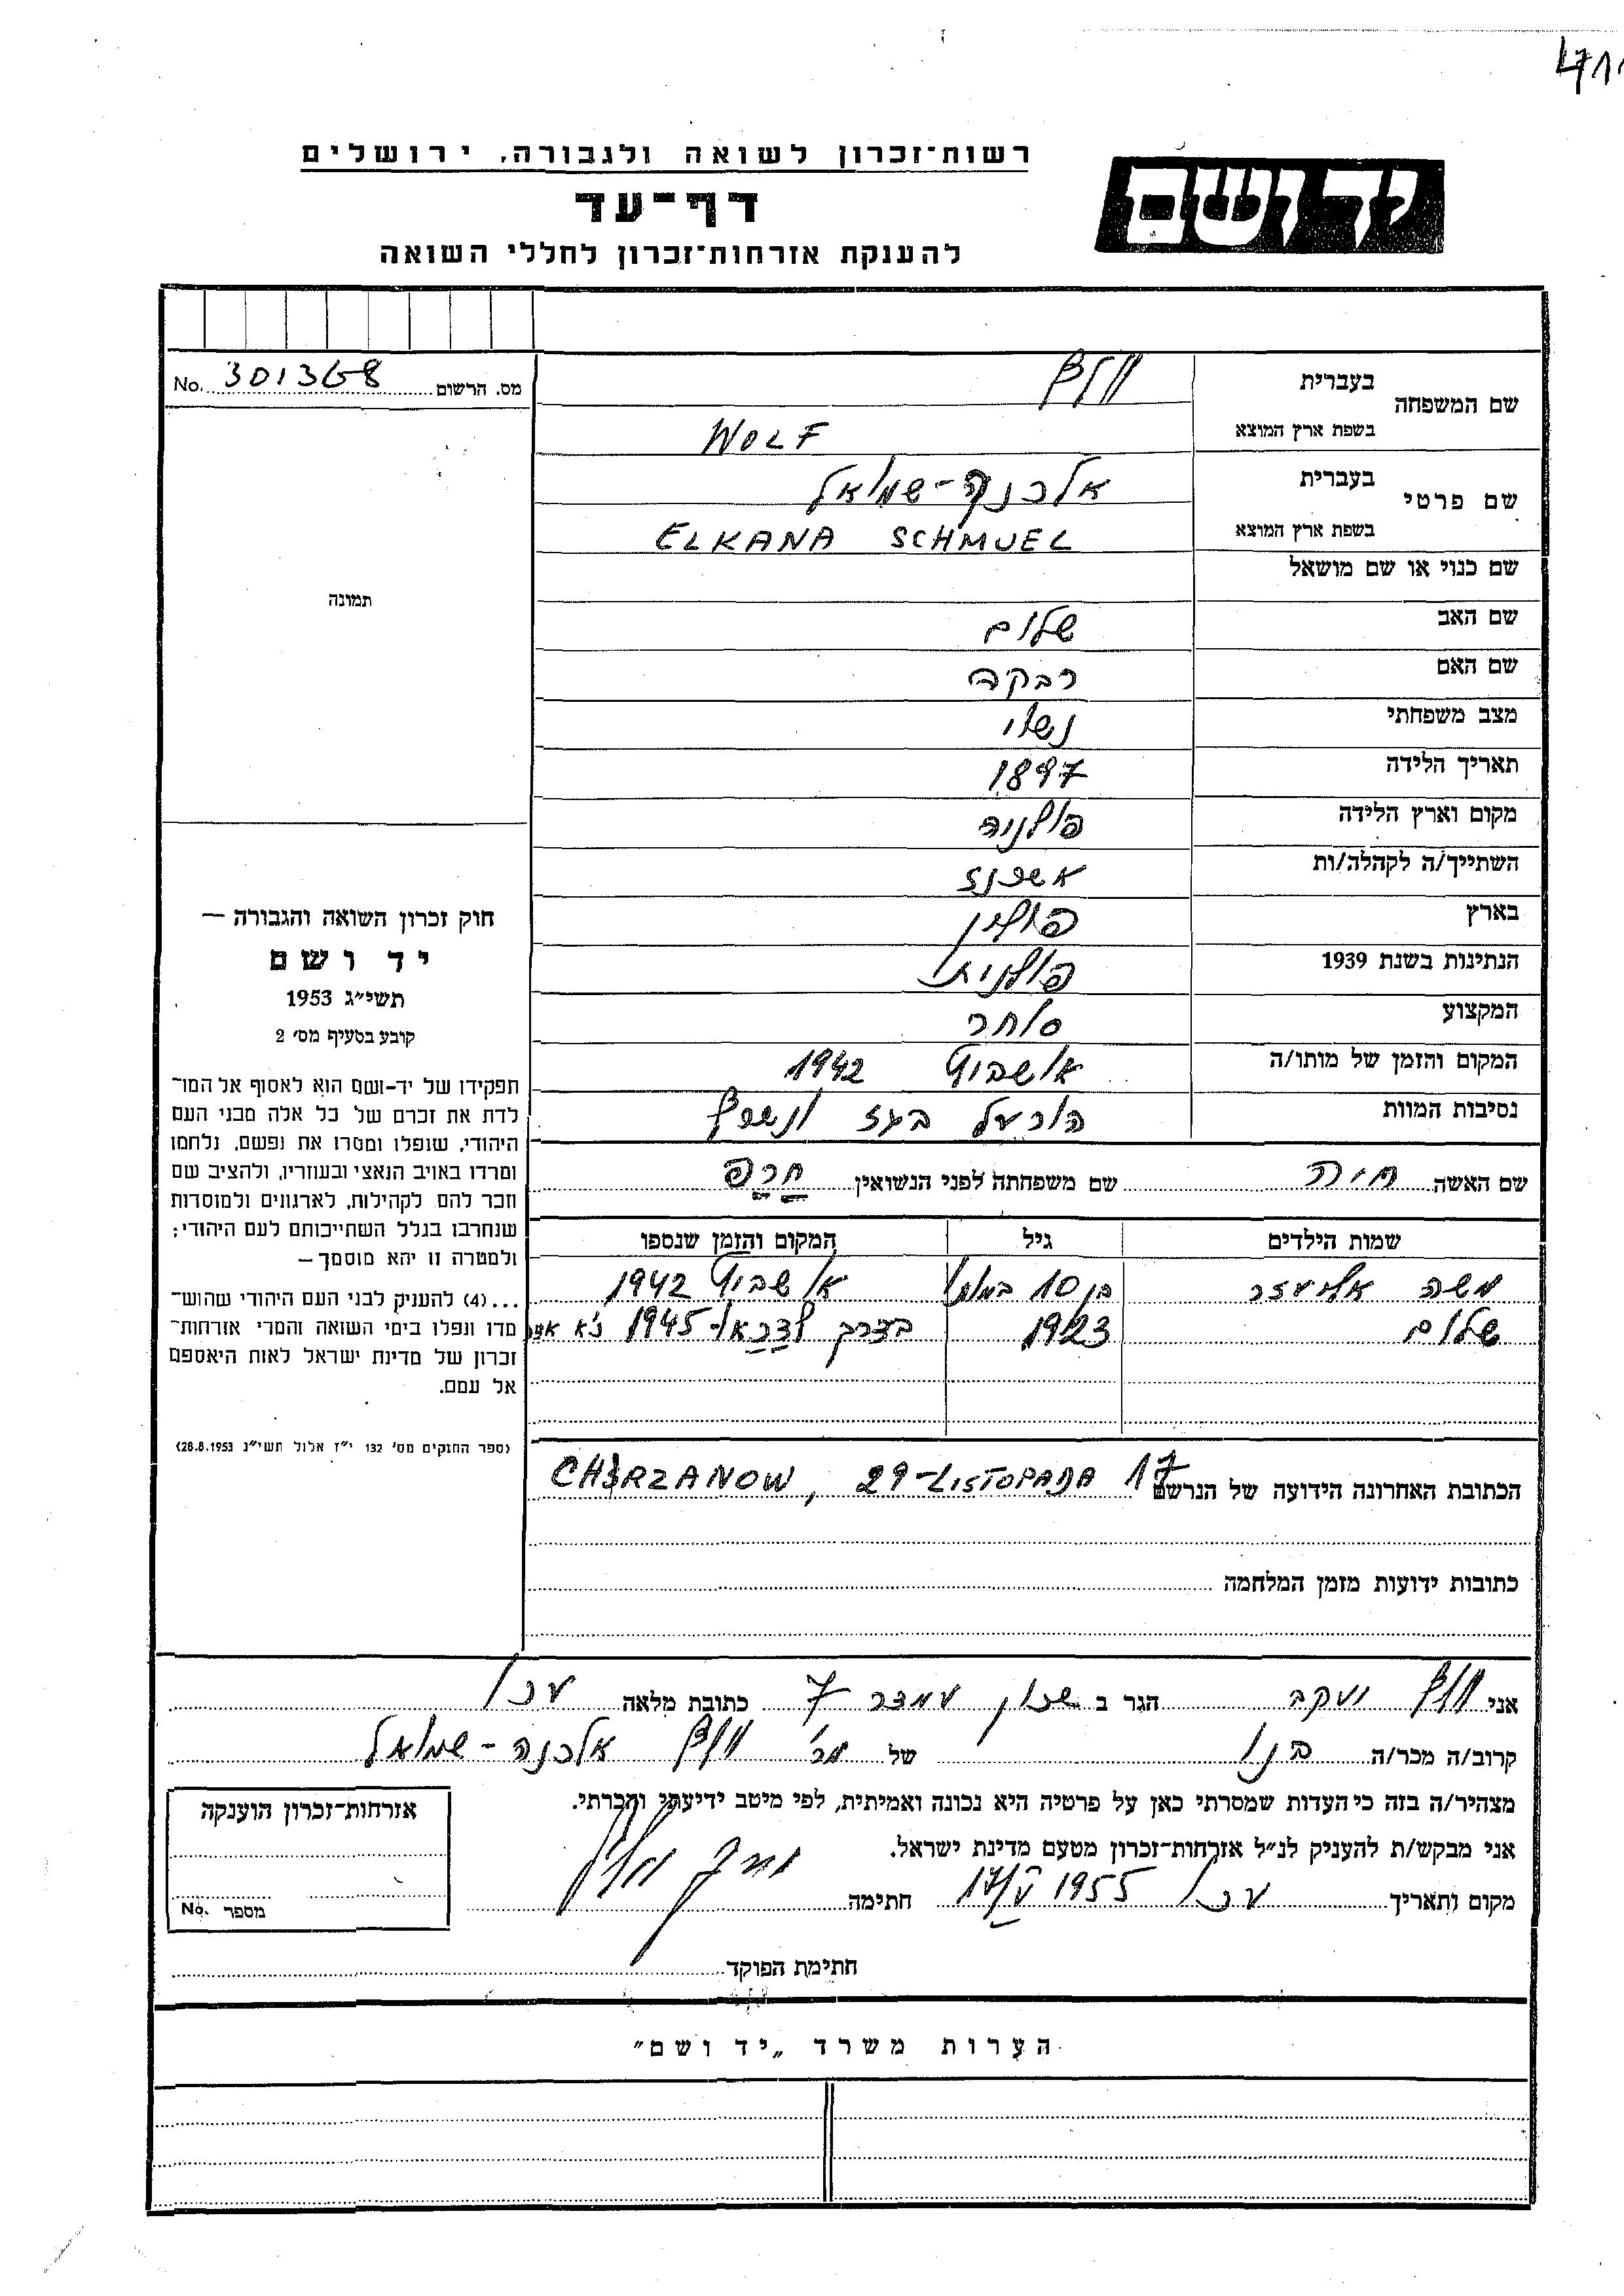 רשות־זכרון לשואה ולגבורה, ירושלים
יד ושם
דף־עד
להענקת אזרחות־זכרון לחללי השואה
מס. הרשום No. 301368
שם המשפחה
בעברית וולף
בשפת ארץ המוצא WOLF
שם פרטי
בעברית אלכנה-שמואל
בשפת ארץ המוצא ELKANA SCHMUEL
שם כנוי או שם מושאל
שם האב שלום
שם האם רבקה
מצב משפחתי נשוי
תאריך הלידה 1897
מקום וארץ הלידה פולניה
השתייך/ה לקהלה/ות אשכנז
בארץ פולין
הנתינות בשנת 1939 פולנית
המקצוע סוחר
המקום והזמן של מותו/ה אושביץ 1942
נסיבות המוות הורעל בגז ונשרף
שם האשה חיה שם משפחתה לפני הנשואין
שמות הילדים גיל המקום והזמן שנספו
משה אליעזר בן 10 במותו אושביץ 1942
שלום 1923 בדרך 1945
הכתובת האחרונה הידועה של הנרשם CHSRZANOW, 29-LISTOPADA 17
כתובות ידועות מזמן המלחמה
תמונה
חוק זכרון השואה והגבורה —
יד ושם
תשי״ג 1953
קובע בסעיף מס׳ 2
תפקידו של יד-ושם הוא לאסוף אל המו־
לדת את זכרם של כל אלה מבני העם
היהודי, שנפלו ומסרו את נפשם, נלחמו
ומרדו באויב הנאצי ובעוזריו, ולהציב שם
וזכר להם לקהילות, לארגונים ולמוסדות
שנחרבו בגלל השתייכותם לעם היהודי;
ולמטרה זו יהא מוסמך —
...(4) להעניק לבני העם היהודי שהוש־
מדו ונפלו בימי השואה והמרי אזרחות־
זכרון של מדינת ישראל לאות היאספם
אל עמם.
(ספר החוקים מס׳ 132 י״ז אלול תשי״ג 28.8.1953)
אני וולף יעקב הגר ב שכון עמידר 7 כתובת מלאה עכו
קרוב/ה מכר/ה בנו של מר׳ וולף אלכנה-שמואל
מצהיר/ה בזה כי העדות שמסרתי כאן על פרטיה היא נכונה ואמיתית, לפי מיטב ידיעתי והכרתי.
אני מבקש/ת להעניק לנ״ל אזרחות־זכרון מטעם מדינת ישראל.
מקום ותאריך עכו 17/V 1955 חתימה
אזרחות־זכרון הוענקה
מספר No.
חתימת הפוקד
הערות משרד „יד ושם״